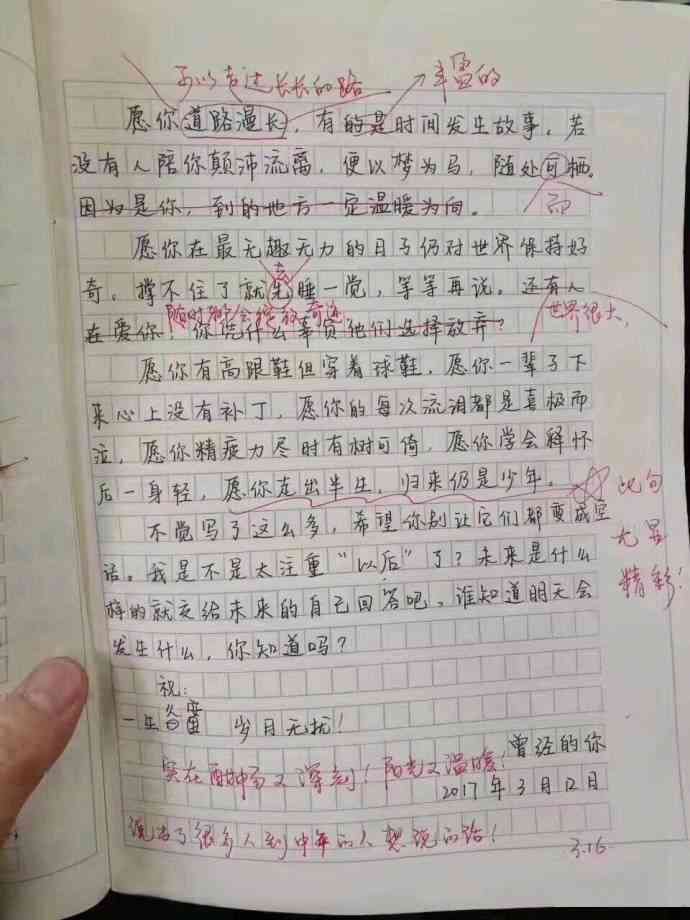 可以走过长长的路
丰富的
愿你道路漫长，有的是时间发生故事。若
没有人陪你颠沛流离，便以梦为马，随处可栖。
因为是你，到的地方一定温暖为向。
而
愿你在最无趣无力的日子仍对世界保持好
去
奇。撑不住了就先睡一觉，等等再说。还有人
随时都会绽放奇迹
世界很大，
在爱你！你凭什么辜负他们选择放弃？
愿你有高跟鞋但穿着球鞋，愿你一辈子下
来心上没有补丁，愿你的每次流泪都是喜极而
泣，愿你精疲力尽时有树可倚，愿你学会释怀
后一身轻，愿你走出半生，归来仍是少年。
此句
不觉写了这么多，希望你别让它们都变成空
尤显
话。我是不是太注重“以后”了？未来是什么
精彩！
样的就交给未来的自己回答吧，谁知道明天会
发生什么，你知道吗？
祝：
一生 岁月无扰！
曾经的你
实在 而又深刻！阳光又温暖！
2017年3月12日
说出了很多人到中年的人想说的话！
3.16